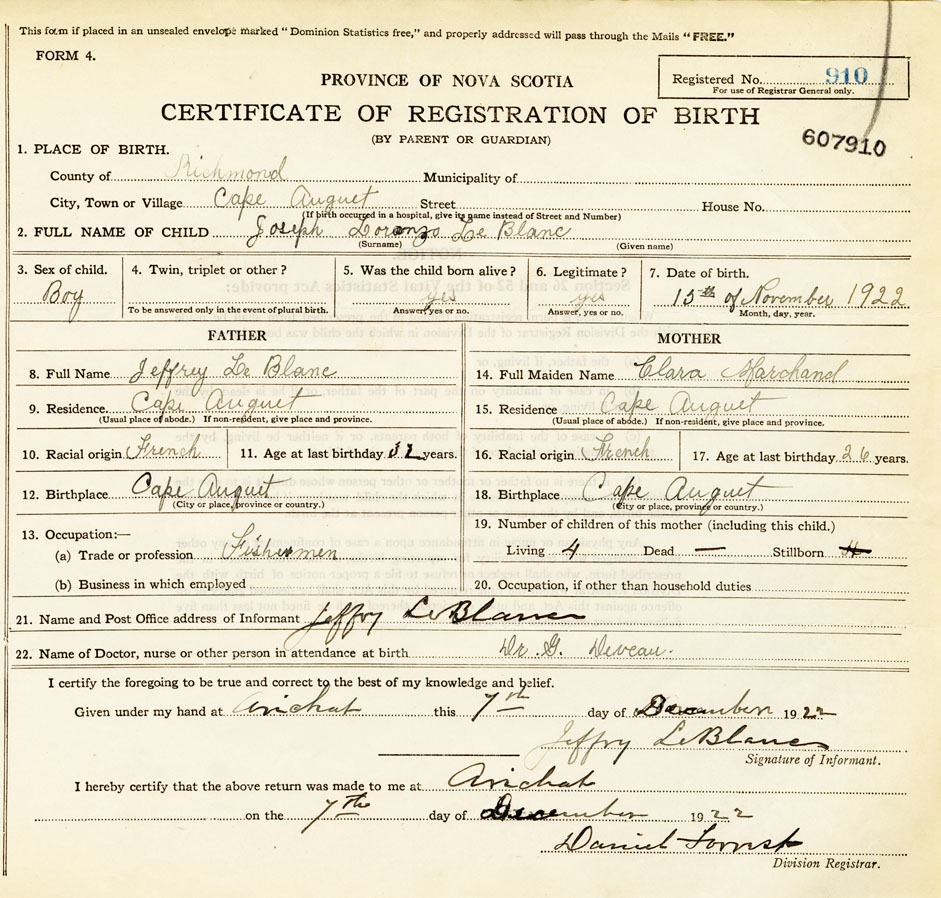 This form if placed in an unsealed envelope marked "Dominion Statistics free," and properly addressed will pass through the Mails "FREE."
FORM 4.
PROVINCE OF NOVA SCOTIA
Registered No. 910
For use of Registrar General only.
CERTIFICATE OF REGISTRATION OF BIRTH
(BY PARENT OR GUARDIAN)
607910
1. PLACE OF BIRTH.
County of Richmond Municipality of
City, Town or Village Cape Auguet Street House No.
(If birth occurred in a hospital, give its name instead of Street and Number)
2. FULL NAME OF CHILD Joseph Lorenzo Le Blanc
(Surname) (Given name)
3. Sex of child. 4. Twin, triplet or other? 5. Was the child born alive? 6. Legitimate? 7. Date of birth.
Boy yes yes 15th of November 1922
To be answered only in the event of plural birth. Answer, yes or no. Answer, yes or no. Month, day, year.
FATHER
8. Full Name Jeffrey Le Blanc
9. Residence. Cape Auguet
(Usual place of abode.) If non-resident, give place and province.
10. Racial origin French 11. Age at last birthday 32 years.
12. Birthplace Cape Auguet
(City or place, province or country.)
13. Occupation:—
(a) Trade or profession Fishermen
(b) Business in which employed
MOTHER
14. Full Maiden Name Clara Marchand
15. Residence Cape Auguet
(Usual place of abode.) If non-resident, give place and province.
16. Racial origin French 17. Age at last birthday 26 years.
18. Birthplace Cape Auguet
(City or place, province or country.)
19. Number of children of this mother (including this child.)
Living 4 Dead — Stillborn
20. Occupation, if other than household duties
21. Name and Post Office address of Informant Jeffry LeBlanc
22. Name of Doctor, nurse or other person in attendance at birth Dr. G. Deveau.
I certify the foregoing to be true and correct to the best of my knowledge and belief.
Given under my hand at Arichat this 7th day of December 1922
Jeffry LeBlanc
Signature of Informant.
I hereby certify that the above return was made to me at Arichat
on the 7th day of December 1922
Daniel Forrest
Division Registrar.